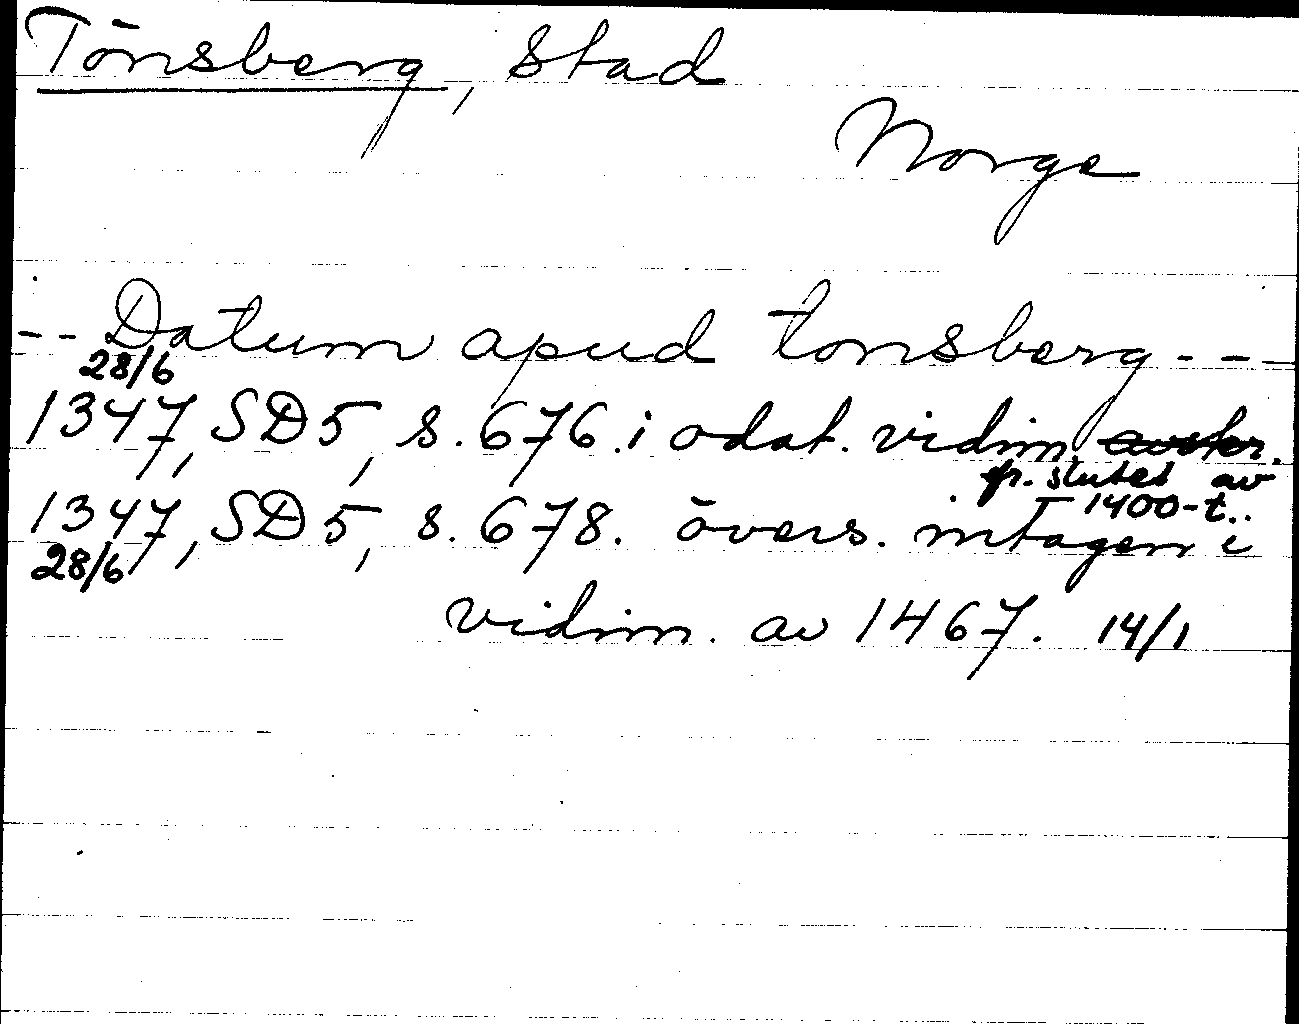 Tönsberg, Stad
Norge
-- Datum apud tonsberg ---
28/6
1347, SD5, s. 676. i odat. vidim. avskr.
fr. slutet av
1400-t..
1347, SD5, s. 678. övers. intagen i
28/6
vidim. av 1467. 14/1